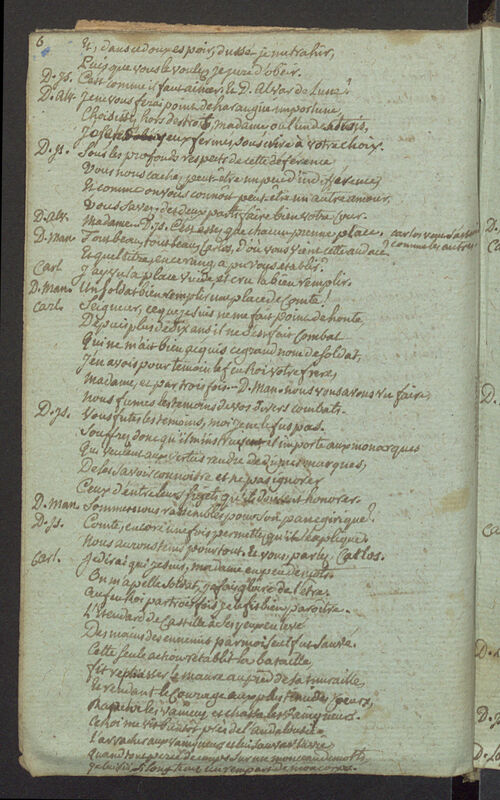 6
Et, dans ce doux espoir, dussé-je me trahir,
Puisque vous le voulez, je jure d'obeir.
D. Is. C'est comme il faut aimer. Et D. Alvar de Lune?
D. Alv. Je ne vous ferai point de harangue importune,
Choisissez, hors des trois, madame
J'oserai yeux fermés souscrire à votre choix.
D. Is. Sous les profonds respects de cette déference
Vous nous cachez peut-être un peu d'indifference,
Et comme on vous connoit peut-être un autre amour,
Vous savez des deux parts faire bien votre cour.
D. Alv. Madame.. D. Is. C'est assez que chacun prenne place,
D. Man. Tout beau, tout beau, Carlos, d'où vous vient cette audace
Et quel titre en ce rang a pu vous établir?
Carl J'ay vu la place vuide et cru la bien remplir.
D. Man. Un soldat bien remplir une place de Comte!
Carl. Seigneur, ce que je suis ne me fait point de honte
Depuis plus de six ans il ne s'est fait combat
Qui ne m'ait bien acquis ce grand nom de soldat,
J'en avois pour temoin le feu Roi votre frere,
Madame, et par trois fois.. D. Man. nous vous avons vu faire,
D. Is. Vous fûtes les temoins, moi je ne le fus pas.
Souffrez donc qu'il m'instruise il importe aux monarques
Qui veulent aux vertus rendre de dignes marques,
De les savoir connoitre et ne pas ignorer
Ceux d'entre leurs sujets qu'ils doivent honorer.
D. Man. Sommes nous rassemblés pour son panegirique?
D. Is. Comte, encore une fois permettez qu'il s'explique.
Nous aurons tems pour tout. Et vous, parlez Carlos.
Carl. Je dirai qui je suis, madame, en peu de mots.
On m'apelle soldat, je fais gloire de l'être.
Au feu Roi par trois fois je le fis bien paroitre.
L'étendart de Castille à ses yeux enlevé
Des mains des ennemis par moi seul fut sauvé.
Cette seule action rétablit la bataille,
Fit rechasser le maure au pied de sa muraille,
Et rendant le courage aux plus timides coeurs,
Rapella les vaincus et chassa les vainqueurs.
Ce Roi me vit
L'arracher aux vainqueurs